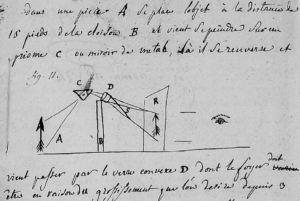 dans une pièce A se place l'objet à la distance de
15 pieds de la cloison B et vient se peindre sur un
prisme C ou miroir de metal, là il se renverse et
fig. 11.
C
D
R
A
B
vient passer par le verre convexe D dont le foyer doit
être en raison du grossissement que l'on desire depuis 3